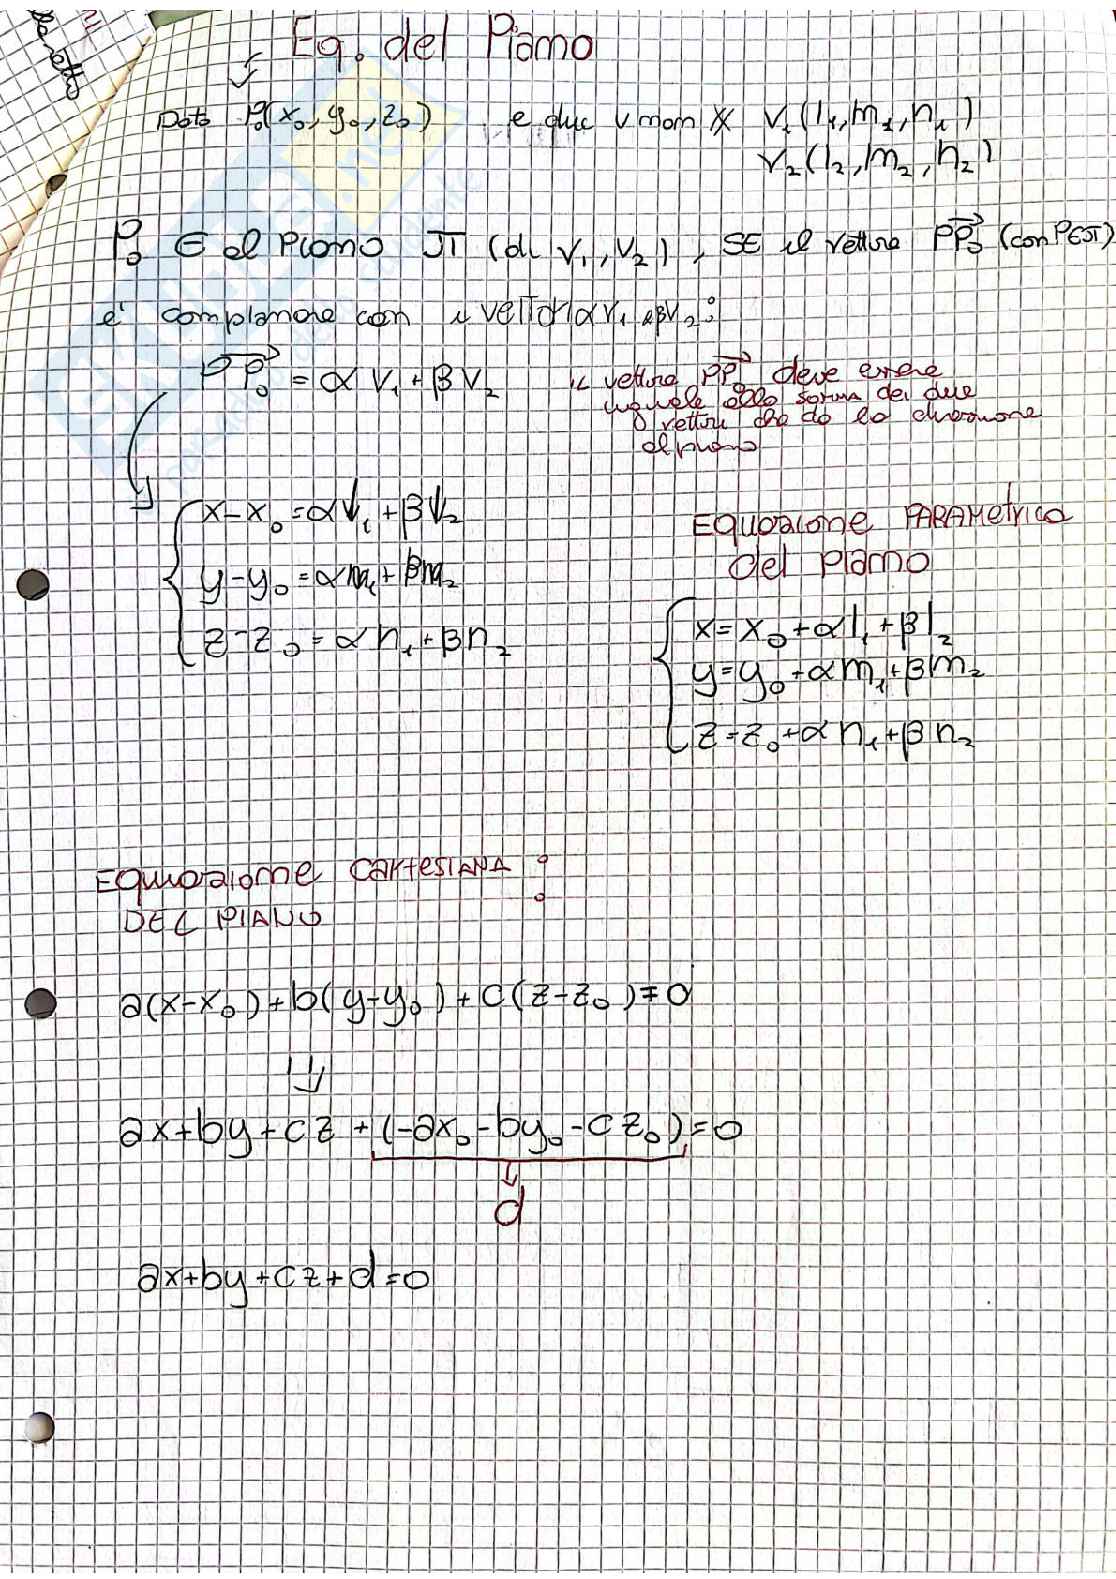 Eq. del Piano
Dato P₀(x₀, y₀, z₀) e due v non ∦ v₁(l₁, m₁, n₁)
v₂(l₂, m₂, n₂)
P₀ ∈ al Piano π (di v₁, v₂), SE il vettore PP₀ (con P∈π)
è complanare con i vettori αv₁ e βv₂:
PP₀ = α v₁ + β v₂
il vettore PP₀ deve essere
uguale alla somma dei due
vettori che dà la direzione
al piano
x-x₀ = αl₁ + βl₂
y-y₀ = αm₁ + βm₂
z-z₀ = α n₁ + β n₂
Equazione PARAMetrica
del Piano
x = x₀ + αl₁ + βl₂
y = y₀ + αm₁ + βm₂
z = z₀ + α n₁ + β n₂
EQuazione CARtESIANA :
DEL PIANO
a(x-x₀) + b(y-y₀) + c(z-z₀) = 0
⇓
ax+by+cz + (-ax₀-by₀-cz₀) = 0
d
ax+by+cz+d=0